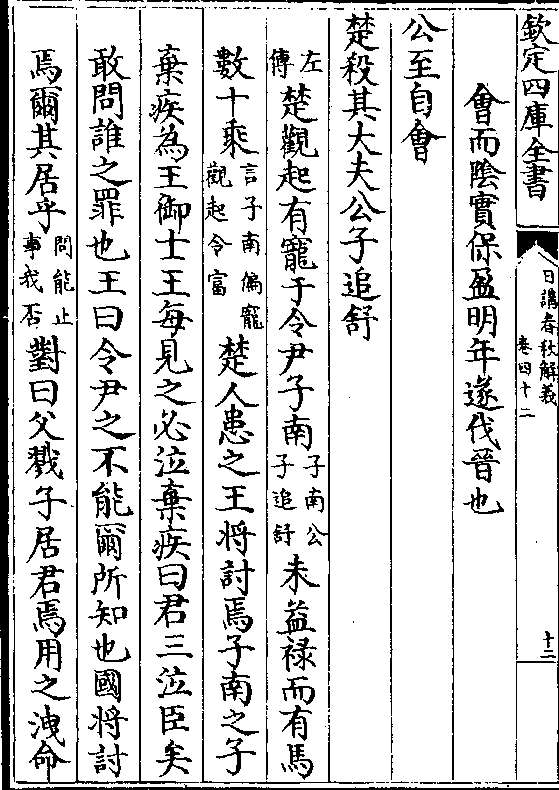 欽定四庫全書
日講春秋解義
卷四十二
十二
會而陰實保盈明年遂伐晉也
公至自會
楚殺其大夫公子追舒
左傳楚觀起有寵于令尹子南子南公子追舒未益禄而有馬
數十乘言子南偏寵觀起令富楚人患之王將討焉子南之子
棄疾為王御士王每見之必泣棄疾曰君三泣臣矣
敢問誰之罪也王曰令尹之不能爾所知也國將討
焉爾其居乎問能止事我否對曰父戮子居君焉用之洩命